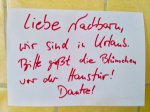 Liebe Nachbarn,
wir sind in Urlaub.
Bitte gießt die Blümchen
vor der Haustür!
Danke!